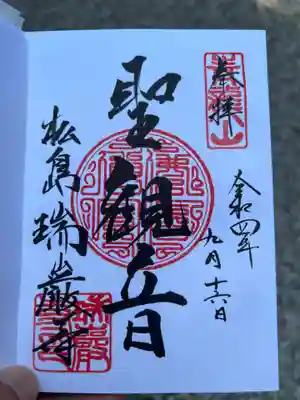 奉拝
令和四年
九月十六日
聖観音
松島瑞巌寺